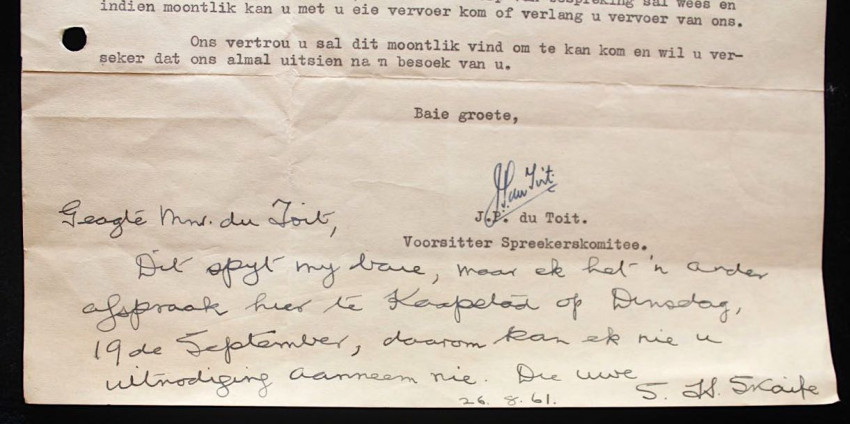 bespreking sal wees en
indien moontlik kan u met u eie vervoer kom of verlang u vervoer van ons.
Ons vertrou u sal dit moontlik vind om te kan kom en wil u ver-
seker dat ons almal uitsien na 'n besoek van u.
Baie groete,
J.P. du Toit
J.P. du Toit.
Voorsitter Spreekerskomitee.
Geagte Mnr. du Toit,
Dit spyt my baie, maar ek het 'n ander
afspraak hier te Kaapstad op Dinsdag,
19de September, daarom kan ek nie u
uitnodiging aanneem nie. Die uwe
S. H. Skaife
26. 8. 61.